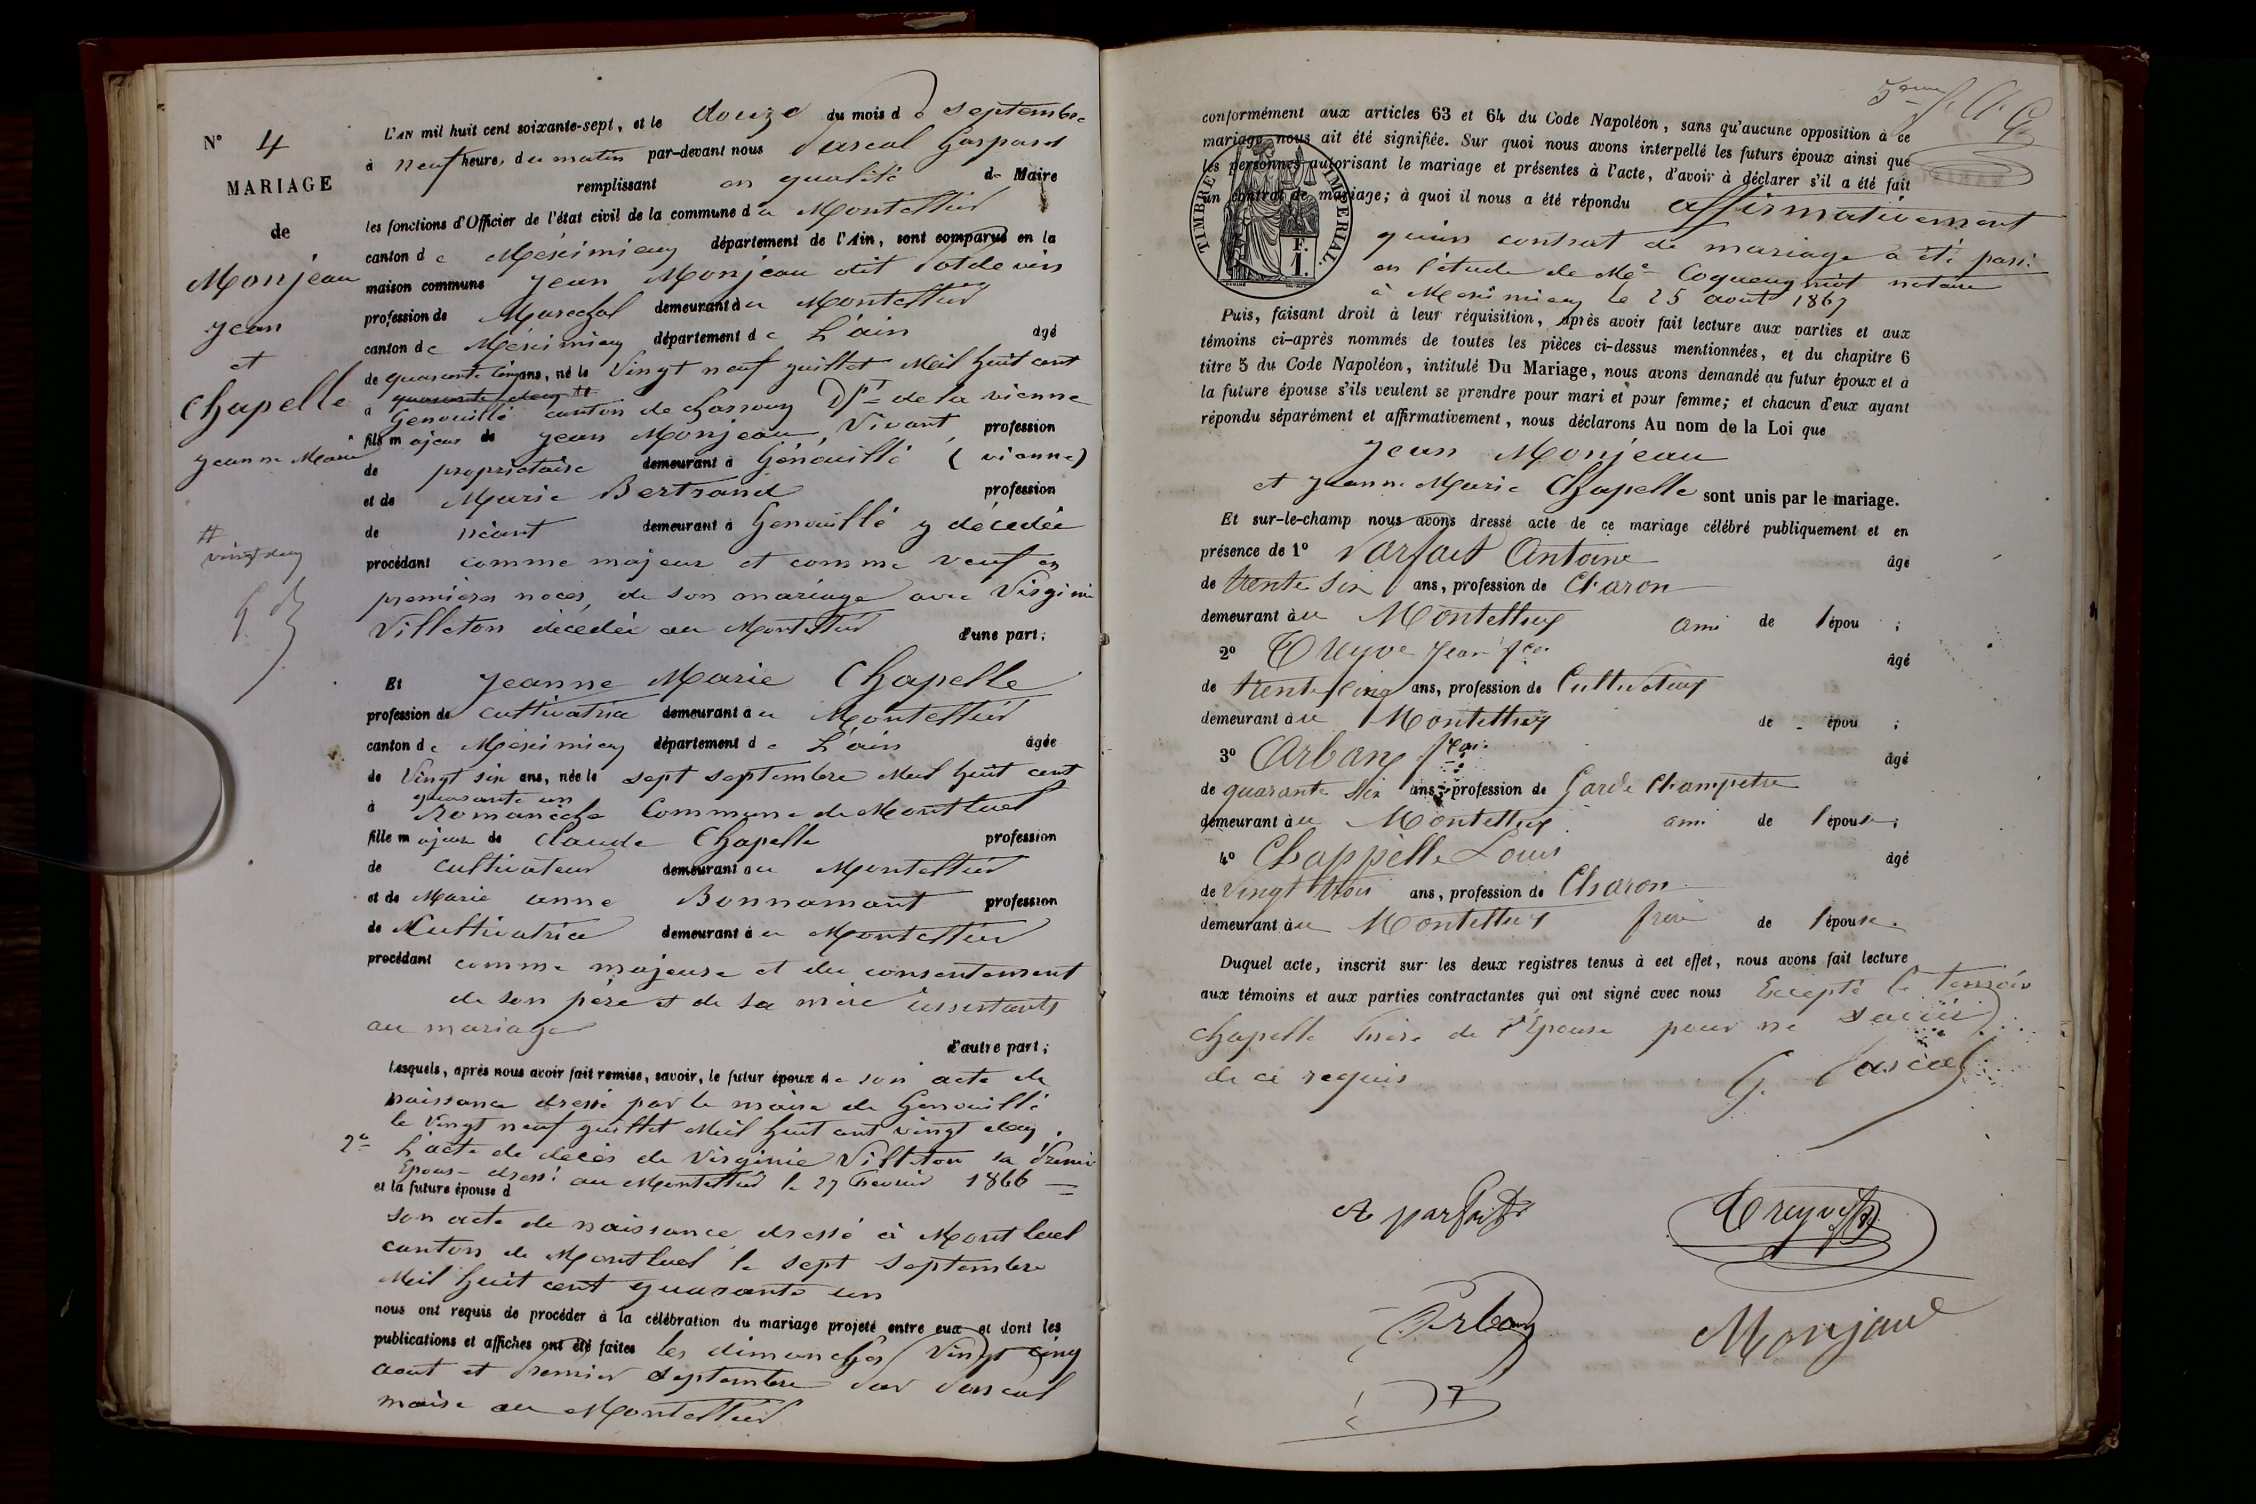 N° 4
MARIAGE
de
Monjeau
Jean
et
Chapelle
Jeanne Marie
#
vingt deux
L'AN mil huit cent soixante-sept, et le douze du mois de septembre
à neuf heures du matin par-devant nous Pascal Gaspard
remplissant en qualité de Maire
les fonctions d'Officier de l'état civil de la commune du Montellier
canton de Méximieux département de l'Ain, sont comparus en la
maison commune Jean Monjeau dit Potdevin
profession de Marechal demeurant au Montellier
canton de Méximieux département de L'ain âgé
de quarante cinq ans, né le Vingt neuf juillet Mil huit cent
quarante deux #
à Genouillé canton de charroux Dpt de la vienne
fils majeur de Jean Monjeau, Vivant, profession
de propriétaire demeurant à Génouillé (vienne)
et de Marie Bertrand profession
de néant demeurant à Genouillé y décedée
procédant comme majeur et comme veuf en
premières noces, de son mariage avec Virginie
Villeton décédée au Montellier d'une part;
Et Jeanne Marie Chapelle
profession de cultivatrice demeurant au Montellier
canton de Méximieux département de L'ain âgée
de Vingt six ans, née le sept septembre Mil huit cent
quarante un
à Romanèche Commune de Montluel
fille majeure de Claude Chapelle profession
de cultivateur demeurant au Montellier
et de Marie anne Bonnamant profession
de Cultivatrice demeurant au Montellier
procédant comme majeure et du consentement
de son père et de sa mère assistants
au mariage
d'autre part;
Lesquels, après nous avoir fait remise, savoir, le futur époux de son acte de
naissance dressé par le maire de Genouillé
le Vingt neuf juillet Mil huit cent vingt deux.
2° L'acte de décès de Virginie Villeton sa Premie
Epouse dressé au Montellier le 27 fevrier 1866
et la future épouse d
son acte de naissance dressé à Montluel
canton de Montluel le sept septembre
Mil huit cent quarante un
nous ont requis de procéder à la célébration du mariage projeté entre eux et dont les
publications et affiches ont été faites les dimanches Vingt cinq
aout et Premier septembre par Pascal
maire au Montellier
conformément aux articles 63 et 64 du Code Napoléon, sans qu'aucune opposition à ce
mariage nous ait été signifiée. Sur quoi nous avons interpellé les futurs époux ainsi que
les personnes autorisant le mariage et présentes à l'acte, d'avoir à déclarer s'il a été fait
un contrat de mariage; à quoi il nous a été répondu affirmativement
TIMBRE IMPERIAL.
F.
I.
qu'un contrat de mariage a été passé
en l'étude de Me Coqueugniot notaire
à Meximieux le 25 aout 1867
Puis, faisant droit à leur réquisition, après avoir fait lecture aux parties et aux
témoins ci-après nommés de toutes les pièces ci-dessus mentionnées, et du chapitre 6
titre 5 du Code Napoléon, intitulé Du Mariage, nous avons demandé au futur époux et à
la future épouse s'ils veulent se prendre pour mari et pour femme; et chacun d'eux ayant
répondu séparément et affirmativement, nous déclarons Au nom de la Loi que
Jean Monjeau
et Jeanne Marie Chapelle sont unis par le mariage.
Et sur-le-champ nous avons dressé acte de ce mariage célébré publiquement et en
présence de 1° Parfait Antoine âgé
de trente six ans, profession de Charon
demeurant au Montellier ami de l'épou ;
2° Treyve Jean fçois âgé
de trente cinq ans, profession de Cultivateur
demeurant au Montellier de - épou ;
3° Arban fçois âgé
de quarante six ans, profession de Garde Champetre
demeurant au Montellier ami de l'épouse;
4° Chappelle Louis âgé
de Vingt trois ans, profession de Charon
demeurant au Montellier frère de l'épouse.
Duquel acte, inscrit sur les deux registres tenus à cet effet, nous avons fait lecture
aux témoins et aux parties contractantes qui ont signé avec nous Excepté le temoin
Chapelle frère de l'Epouse pour ne savoir
de ce requis
G. Pascal
A parfait
Treyve
Arban
Monjaud